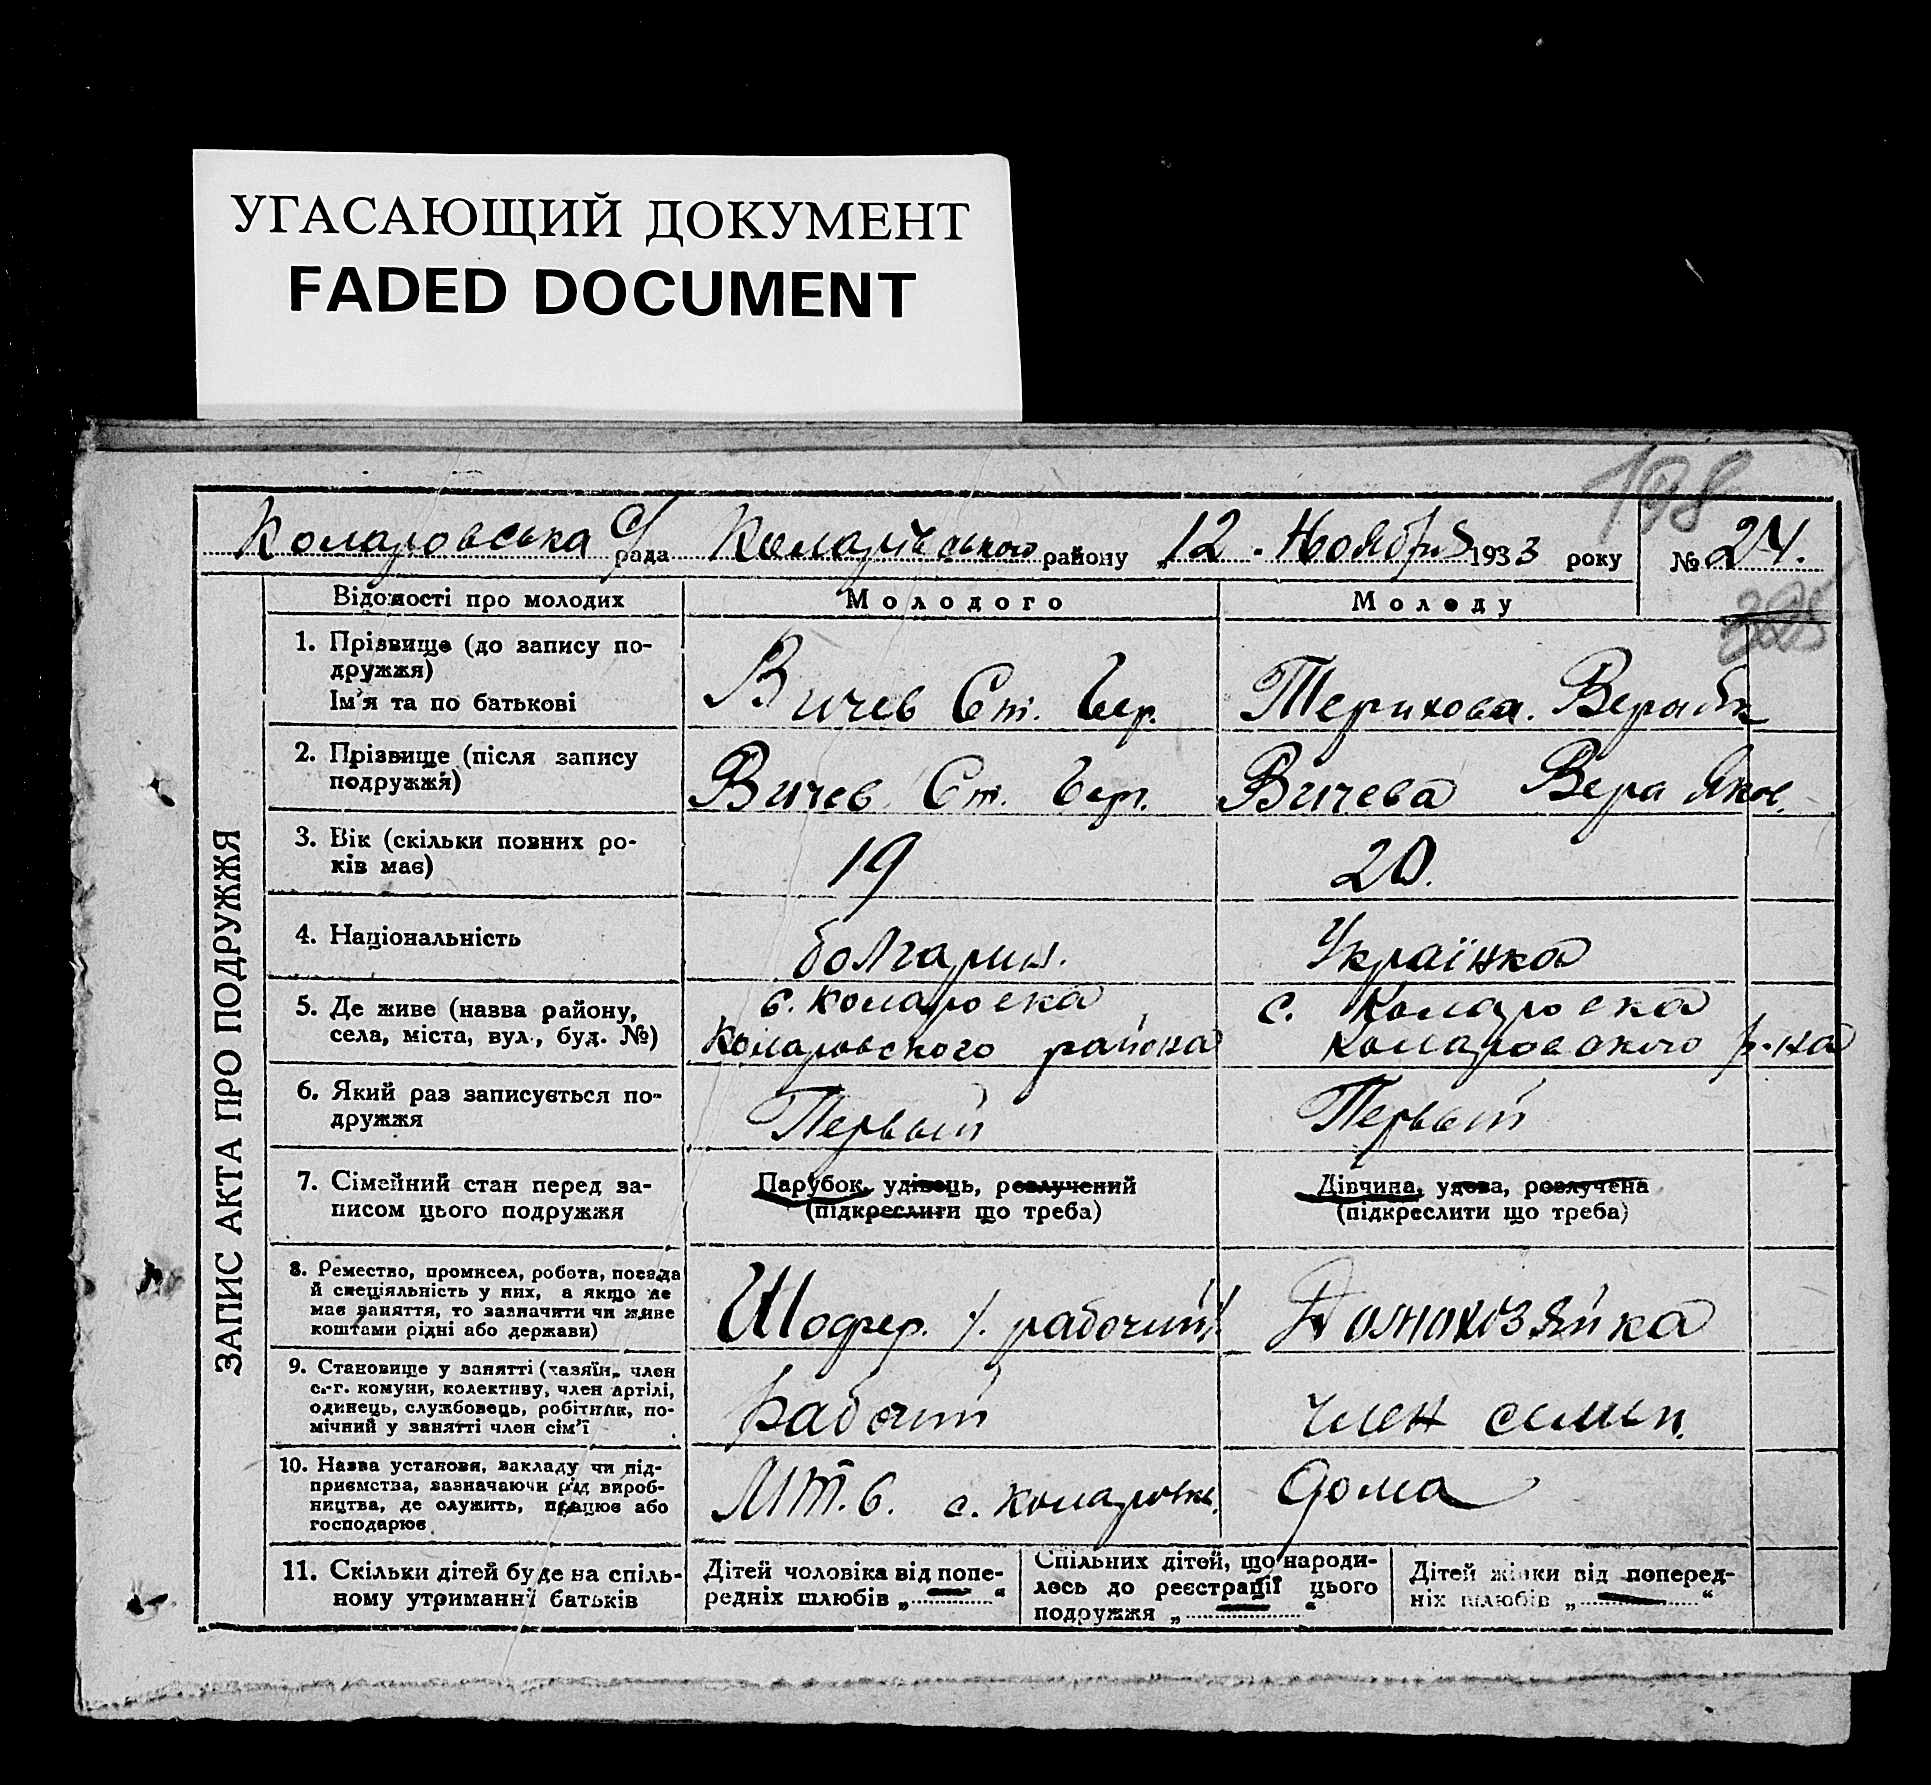 УГАСАЮЩИЙ ДОКУМЕНТ
FADED DOCUMENT
198
Коларовська с/рада Коларівського району „12. Ноября 1933 року № 24.
ЗАПИС АКТА ПРО ПОДРУЖЖЯ
Відомості про молодих Молодого Молоду
1. Прізвище (до запису по-
дружжя)
Ім'я та по батькові
Вичев Ст. Терихова. Вера
2. Прізвище (після запису
подружжя)
Вичев Ст. Вичева Вера Яков.
3. Вік (скільки повних ро-
ків має)
19 20.
4. Національність
болгарин. Українка
5. Де живе (назва району,
села, міста, вул., буд. №)
с. Коларовка с. Коларовка
Коларовского района Коларовского р-на
6. Який раз записується по-
дружжя
Первый Первый
7. Сімейний стан перед за-
писом цього подружжя
Парубок, удівець, розлучений
(підкреслити що треба)
Дівчина, удова, розлучена
(підкреслити що треба)
8. Ремество, промисел, робота, посада
й спеціяльність у них, а якщо не
має заняття, то зазначити чи живе
коштами рідні або держави)
Шофер. /. рабочий/. Домохозяйка
9. Становище у занятті (хазяїн, член
с.-г. комуни, колективу, член артілі,
одинець, службовець, робітник, по-
мічний у занятті член сім'ї
Рабочий член семьи.
10. Назва установи, закладу чи під-
приємства, зазначаючи рід вироб-
ництва, де служить, працює або
господарює
с. Коларовка. Дома
11. Скільки дітей буде на спіль-
ному утриманні батьків
Дітей чоловіка від попе-
редніх шлюбів „ — “
Спільних дітей, що народи-
лось до реєстрації цього
подружжя „ — “
Дітей жінки від поперед-
ніх шлюбів „ — “